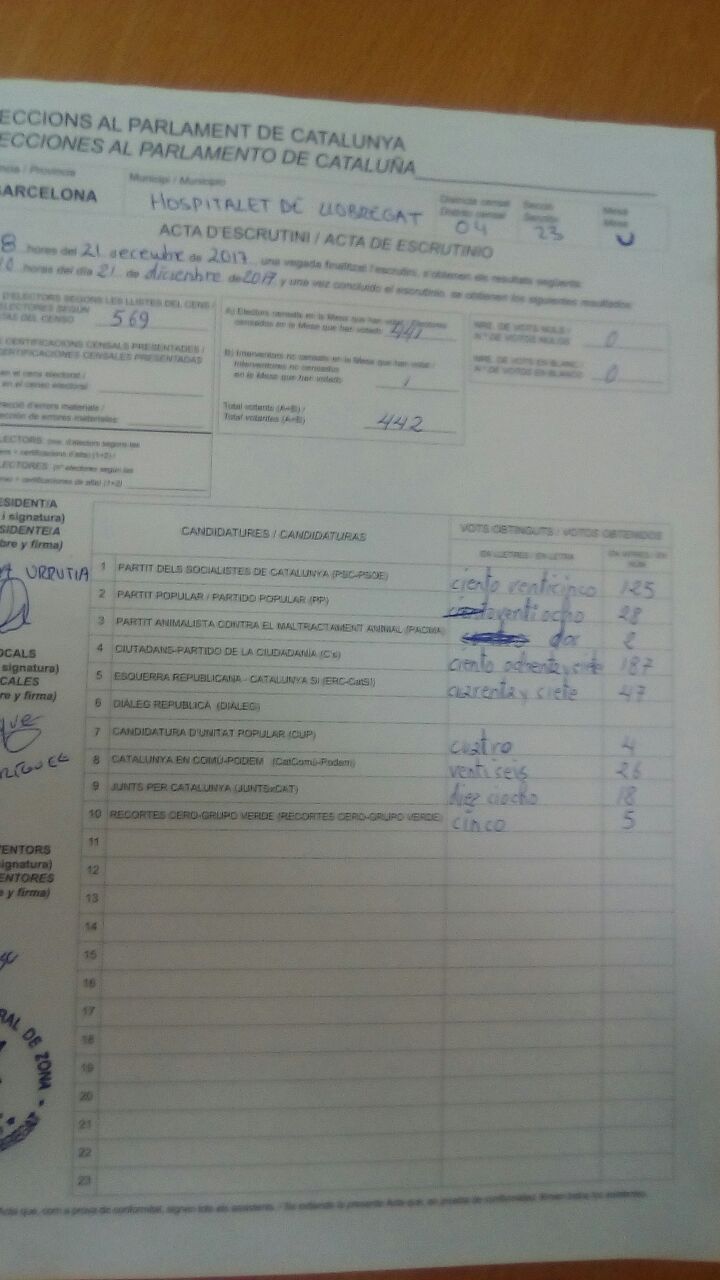 ECCIONS AL PARLAMENT DE CATALUNYA
ECCIONES AL PARLAMENTO DE CATALUÑA
ncia / Provincia
Municipi / Municipio
BARCELONA
HOSPITALET DE LLOBREGAT
Districte censal
Distrito censal
04
Secció
Sección
23
Mesa
Mesa
U
ACTA D'ESCRUTINI / ACTA DE ESCRUTINIO
8 hores del 21 decembre de 2017, una vegada finalitzat l'escrutini, s'obtenen els resultats següents:
horas del día 21 de diciembre de 2017 y una vez concluido el escrutinio, se obtienen los siguientes resultados:
D'ELECTORS SEGONS LES LLISTES DEL CENS /
ELECTORES SEGÚN
TAS DEL CENSO
569
CERTIFICACIONS CENSALS PRESENTADES /
CERTIFICACIONES CENSALES PRESENTADAS
en el cens electoral /
en el censo electoral
rrecció d'errors materials /
ección de errores materiales:
A) Electors censats en la Mesa que han votat / Electores
censados en la Mesa que han votado
441
B) Interventors no censats en la Mesa que han votat /
Interventores no censados
en la Mesa que han votado
1
Total votants (A+B) /
Total votantes (A+B)
442
NRE. DE VOTS NULS /
N.º DE VOTOS NULOS
0
NRE. DE VOTS EN BLANC /
N.º DE VOTOS EN BLANCO
0
ESIDENT/A
i signatura)
SIDENTE/A
bre y firma)
URRUTIA
OCALS
signatura)
CALES
re y firma)
VENTORS
ignatura)
ENTORES
e y firma)
CANDIDATURES / CANDIDATURAS
VOTS OBTINGUTS / VOTOS OBTENIDOS
EN LLETRES / EN LETRA
EN XIFRES / EN NÚM.
1 PARTIT DELS SOCIALISTES DE CATALUNYA (PSC-PSOE) ciento venticinco 125
2 PARTIT POPULAR / PARTIDO POPULAR (PP) ventiocho 28
3 PARTIT ANIMALISTA CONTRA EL MALTRACTAMENT ANIMAL (PACMA) dos 2
4 CIUTADANS-PARTIDO DE LA CIUDADANÍA (C's) ciento ochenta y siete 187
5 ESQUERRA REPUBLICANA - CATALUNYA SÍ (ERC-CatSí) cuarenta y siete 47
6 DIÀLEG REPUBLICÀ (DIÀLEG)
7 CANDIDATURA D'UNITAT POPULAR (CUP) cuatro 4
8 CATALUNYA EN COMÚ-PODEM (CatComú-Podem) ventiseis 26
9 JUNTS PER CATALUNYA (JUNTSxCAT) diez ciocho 18
10 RECORTES CERO-GRUPO VERDE (RECORTES CERO-GRUPO VERDE) cinco 5
11
12
13
14
15
16
17
18
19
20
21
22
23
RAL DE ZONA
Acta que, com a prova de conformitat, signen tots els assistents. / Se extiende la presente Acta que, en prueba de conformidad, firman todos los asistentes.